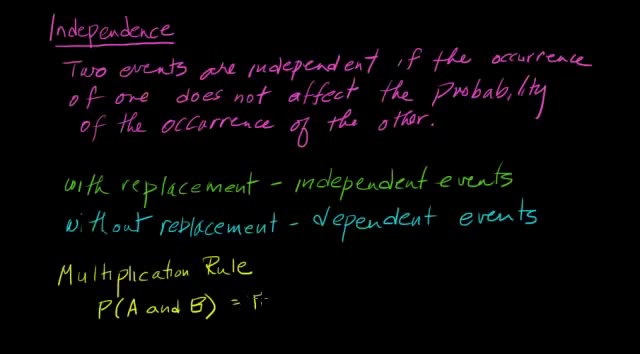 Independence
Two events are independent if the occurrence
of one does not affect the Probability
of the occurrence of the other.
with replacement - independent events
without replacement - dependent events
Multiplication Rule
P(A and B) =